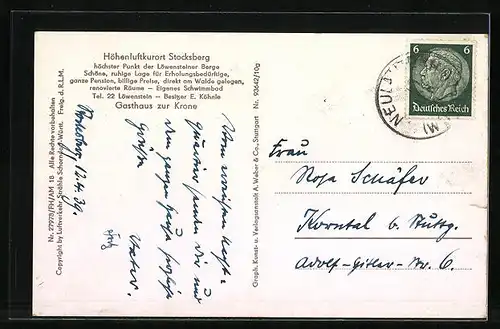 Höhenluftkurort Stocksberg
höchster Punkt der Löwensteiner Berge
Schöne, ruhige Lage für Erholungsbedürftige,
ganze Pension, billige Preise, direkt am Walde gelegen,
renovierte Räume — Eigenes Schwimmbad
Tel. 22 Löwenstein — Besitzer E. Köhnle
Gasthaus zur Krone
Nr. 27978/FH/AM 18 Alle Rechte vorbehalten
Copyright by Luftverkehr Strähle Schorndorf-Württ. Freig. d. R.L.M.
Stocksberg 12.4.39.
Vom
senden Dir und
der ganzen
Grüße
Vater.
Graph. Kunst- u. Verlagsanstalt A. Weber & Co., Stuttgart Nr. 93642/10g
6 6
Deutsches Reich
Frau
Rosa Schäfer
Korntal b. Stuttg.
Adolf-Hitler-Str. 6.